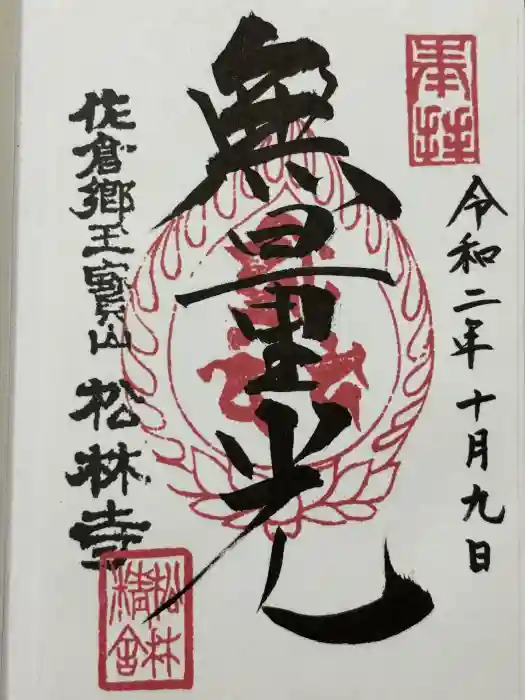 奉拝
令和二年十月九日
無量光
佐倉郷王寳山 松林寺
松林
精舎